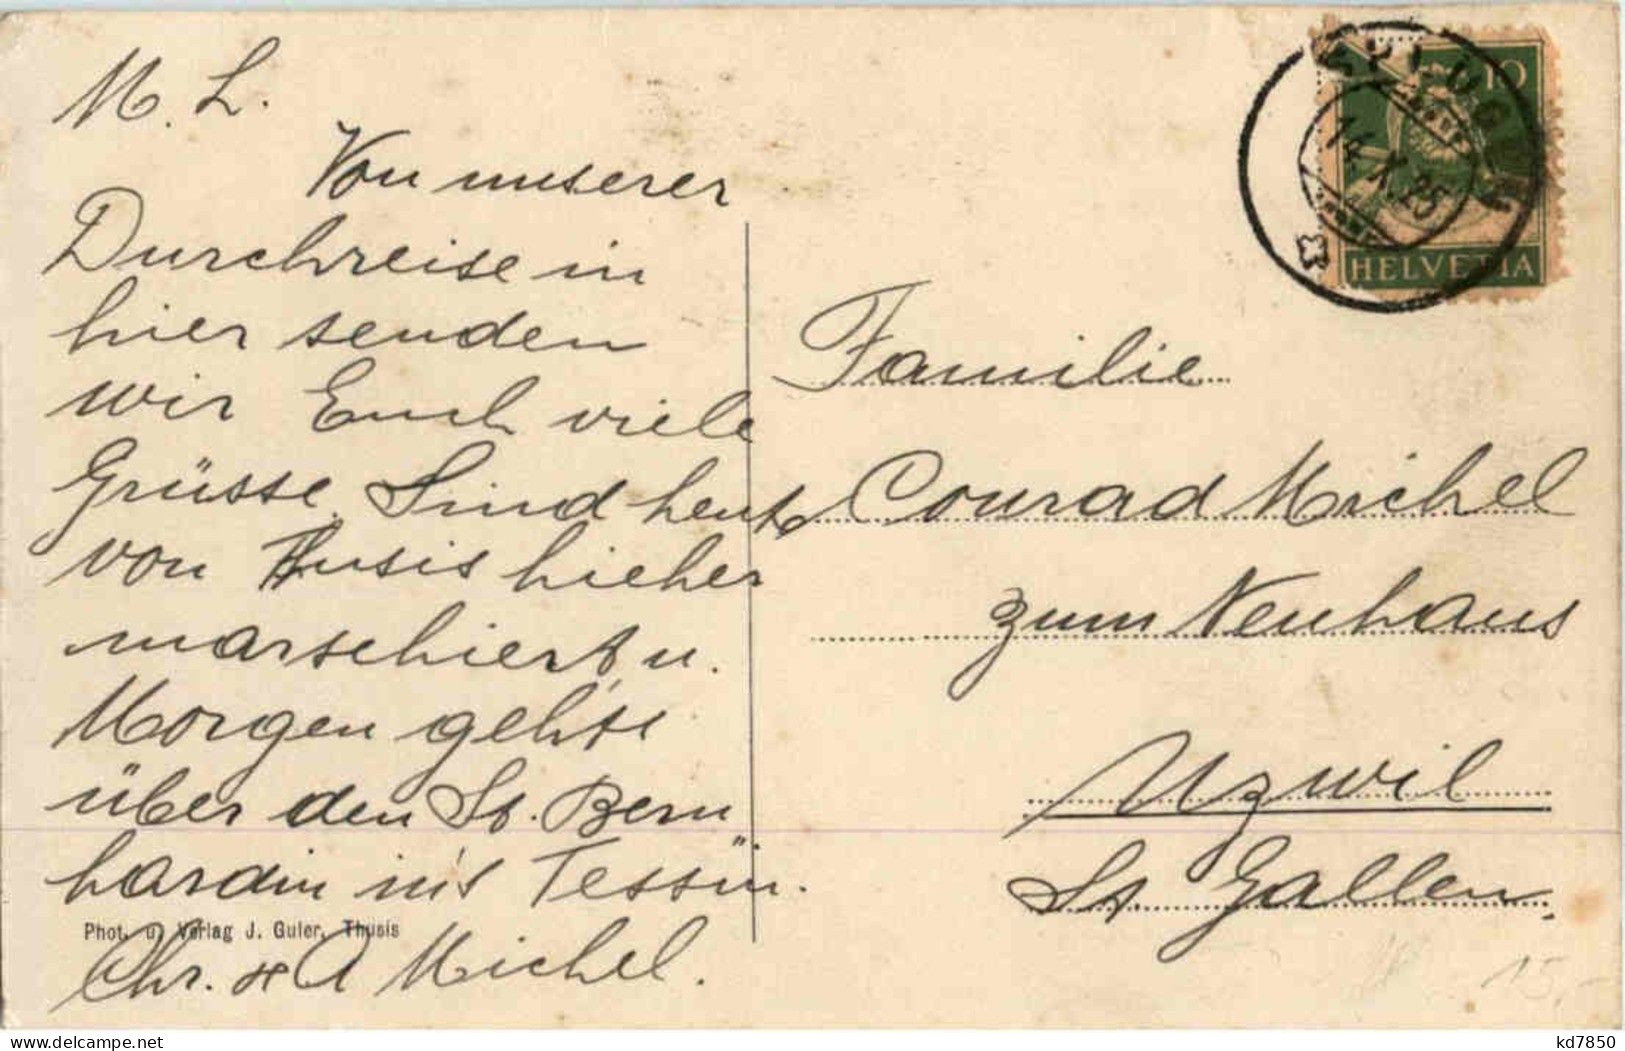 M. L.
Von unserer
Durchreise in
hier senden
wir Euch viele
Grüsse. Sind heute
von Thusis hieher
marschiert u.
Morgen gehts
über den St. Bern
hardin in's Tessin.
Chr. & A Michel.
Phot. u. Verlag J. Guler, Thusis
10
HELVETIA
SPLÜGEN
14.X.25
Familie
Conrad Michel
zum Neuhaus
Uzwil
St. Gallen.
15,-
kd7850